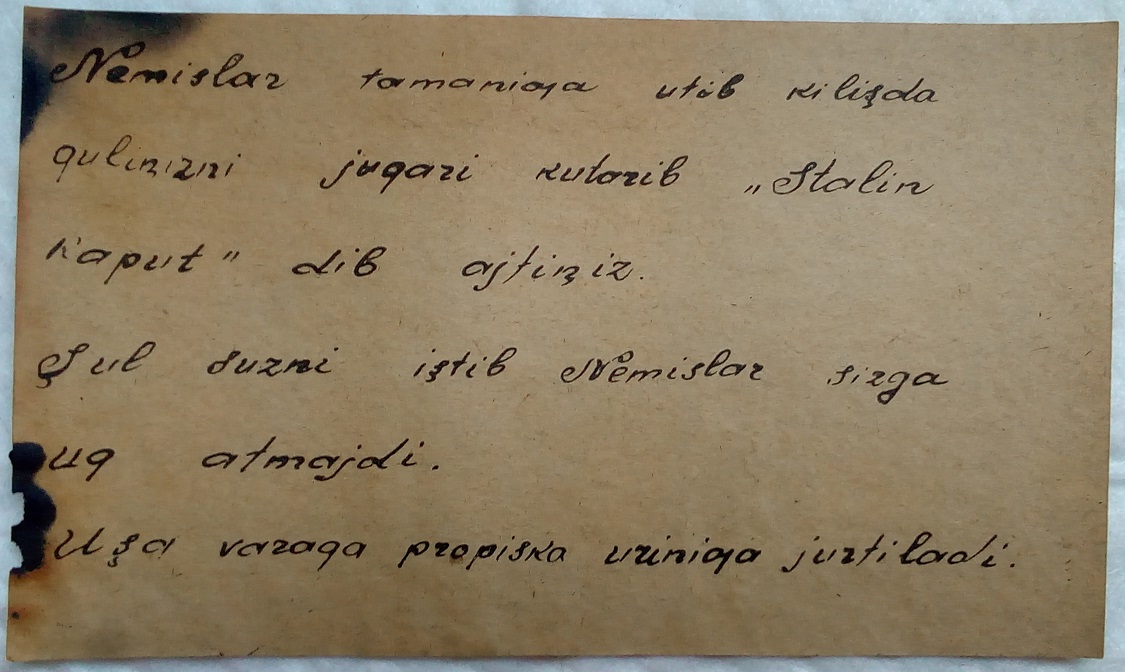 Nemislar tamaniga utib kilişda
qulin̡izni juqari kutarib „Stalin
kaput" dib ajtin̡iz.
Şul suzni iştib Nemislar sizga
uq atmajdi.
Uşa varaqa propiska uriniga jurtiladi.